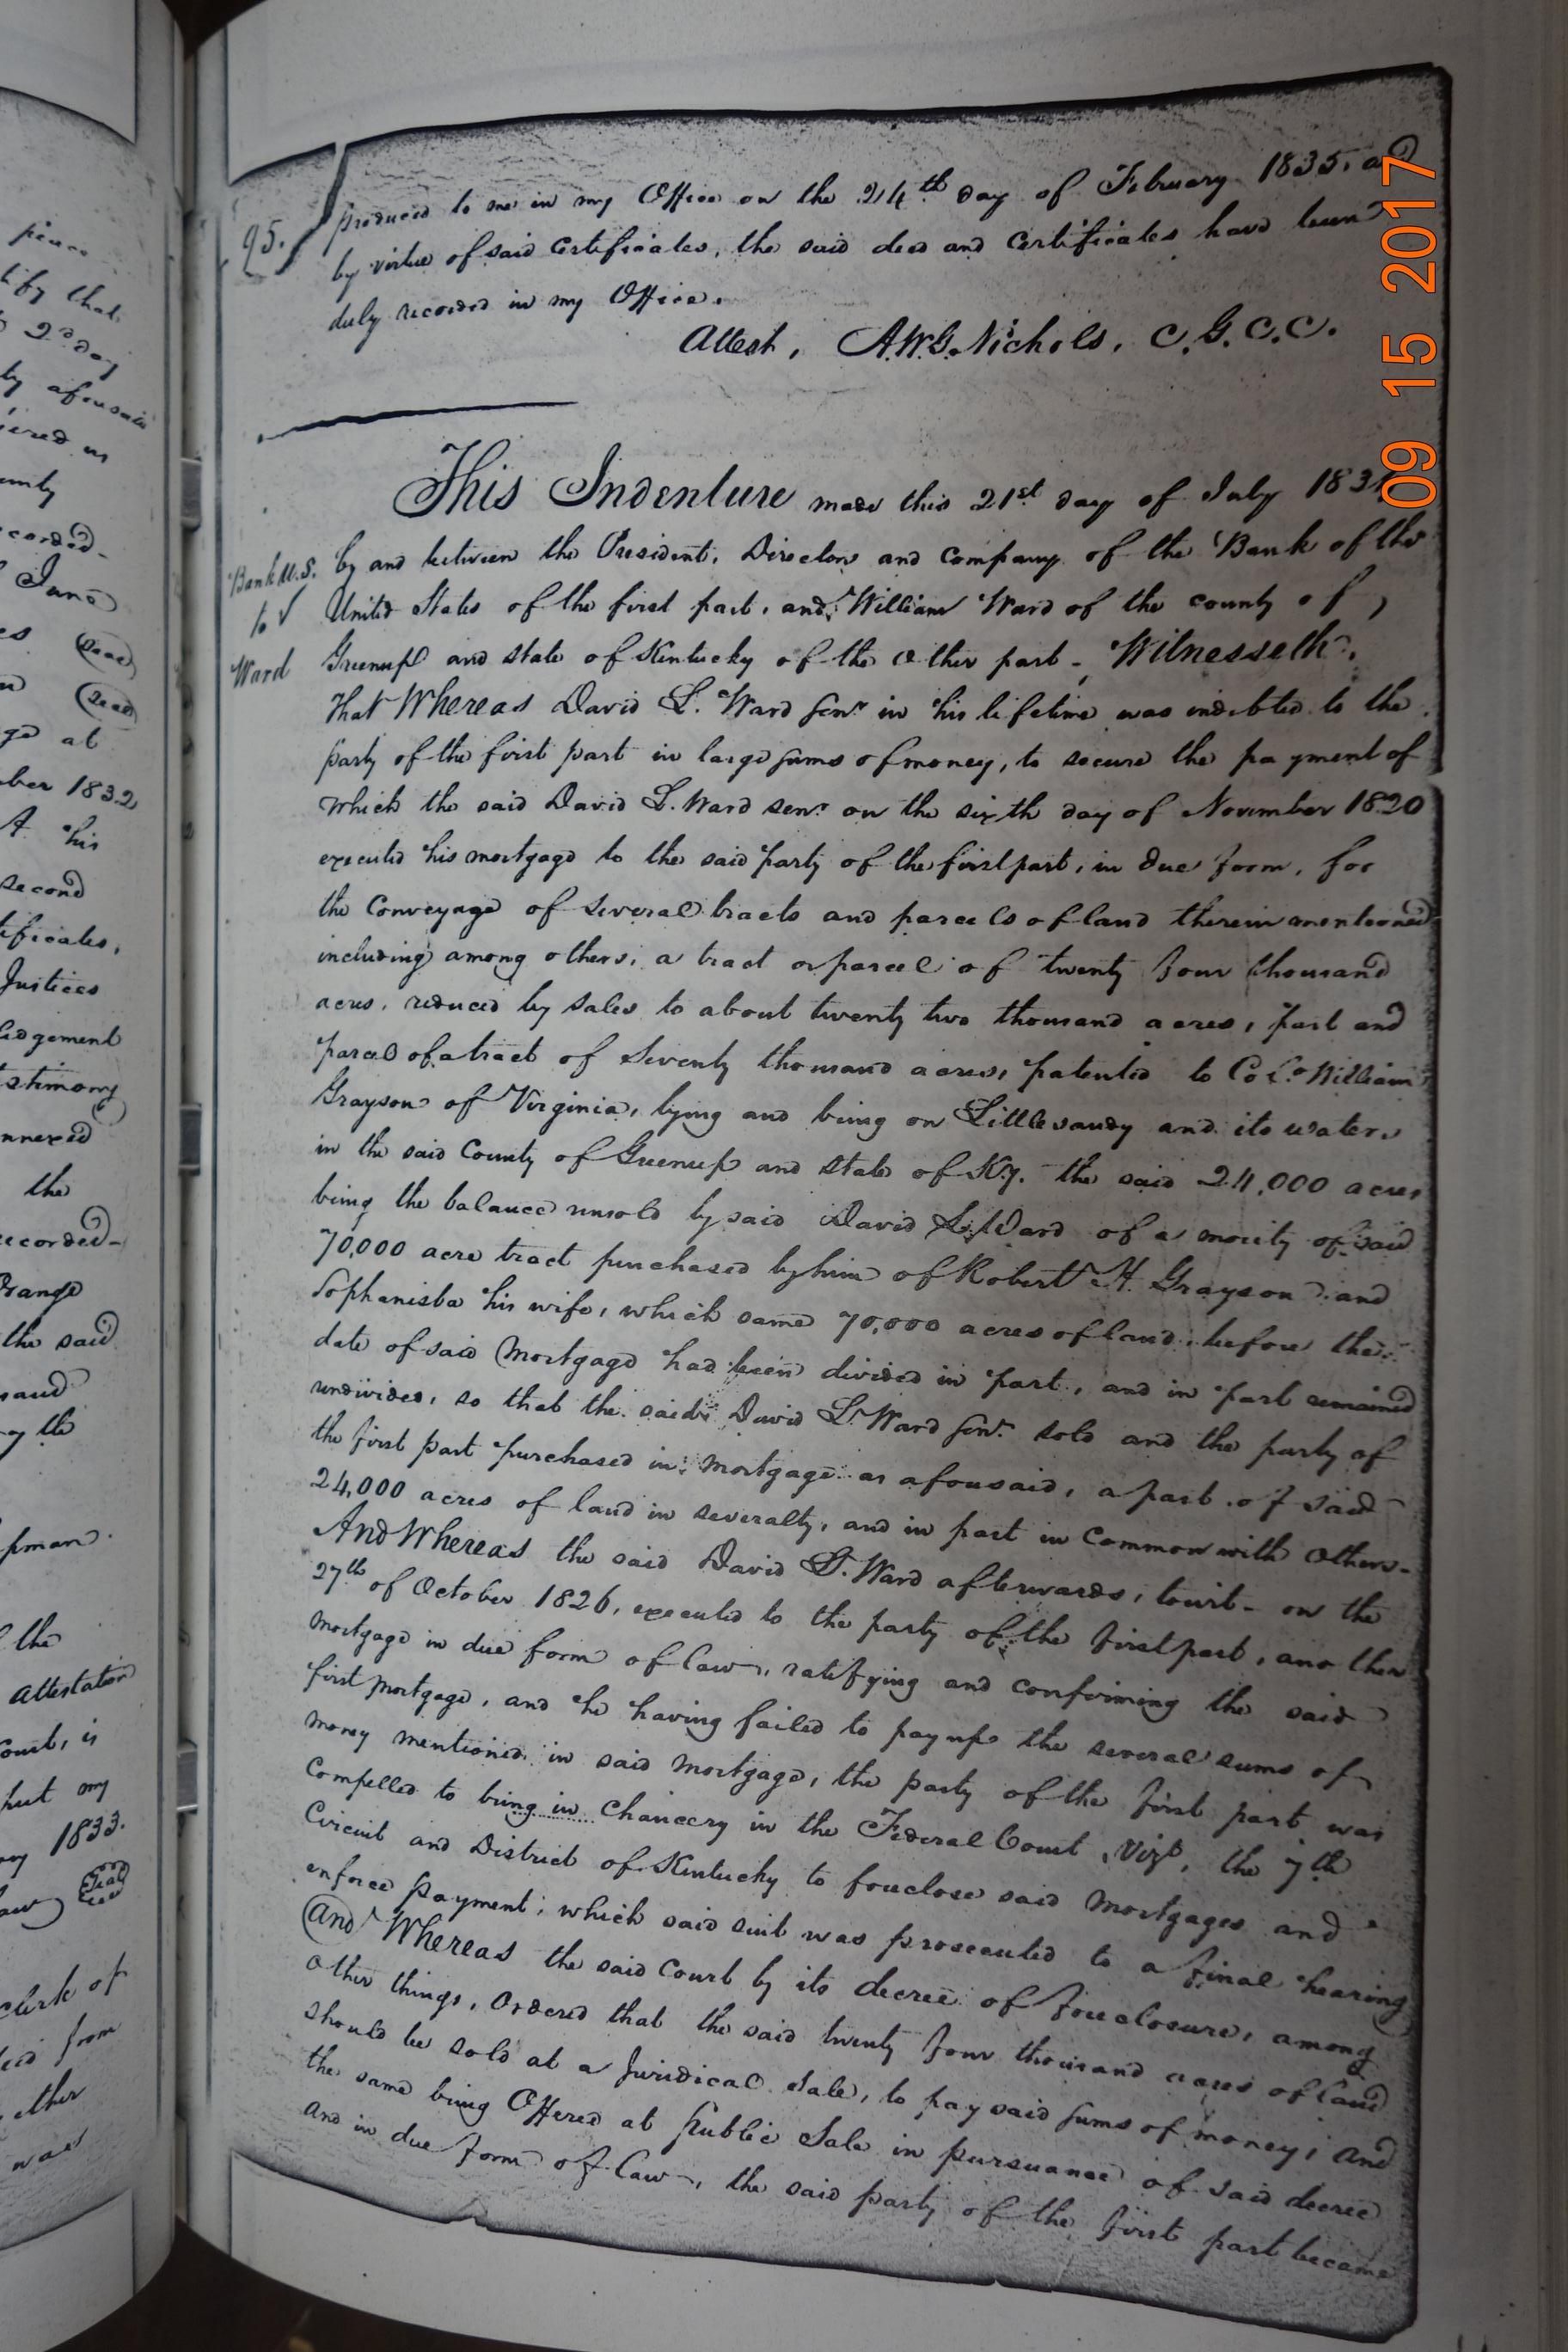 95.
produced to me in my Office on the 24th day of February 1835. and
by virtue of said certificates, the said deed and certificates have been
duly recorded in my Office.
Attest, A.W.G. Nichols, C.G.C.C.
This Indenture made this 21st day of July
Bank U.S. to Ward
by and between the President, Directors and Company of the Bank of the
United States of the first part, and William Ward of the county of
Greenup and state of Kentucky of the other part, Witnesseth,
That Whereas David L. Ward senr in his lifetime was indebted to the
party of the first part in large sums of money, to secure the payment of
which the said David L. Ward senr on the sixth day of November 1820
executed his mortgage to the said party of the first part, in due form, for
the Conveyage of several tracts and parcels of land therein mentioned
including among others, a tract or parcel of twenty four thousand
acres, reduced by sales to about twenty two thousand acres, part and
parcel of a tract of seventy thousand acres, patented to Colo William
Grayson of Virginia, lying and being on Little sandy and its waters
in the said County of Greenup and state of Ky. the said 24,000 acres
being the balance unsold by said David L. Ward of a moiety of said
70,000 acre tract purchased by him of Robert H. Grayson and
Sophanisba his wife, which same 70,000 acres of land, before the
date of said Mortgage had been divided in part, and in part remained
undivided, so that the said David L. Ward senr sold and the party of
the first part purchased in mortgage as afousaid, a part of said
24,000 acres of land in severalty, and in part in Common with Others-
And Whereas the said David L. Ward afterwards, towit- on the
27th of October 1826, executed to the party of the first part, another
mortgage in due form of law, ratifying and confirming the said
first mortgage, and he having failed to pay up the several sums of
money mentioned in said mortgage, the party of the first part was
Compelled to bring in Chancery in the Federal Court, Vizt, the 7th
Circuit and District of Kentucky to fouclose said Mortgages and
enforce payment; which said suit was prosecuted to a final hearing
And Whereas the said Court by its decree of fouclosure, among
other things, Ordered that the said twenty four thousand acres of land
should be sold at a Juridical sale, to pay said sums of money; And
the same being Offered at Public Sale in pursuance of said decree
and in due form of law, the said party of the first part became
09 15 2017